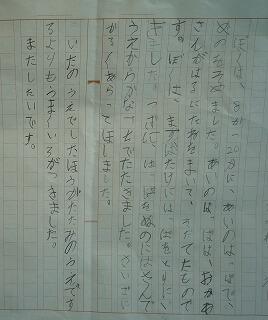 ぼくは、8がつ20日に、あいのはっぱで、
ぬのをそめました。あいのはっぱは、おかあ
さんがはるにたねをまいて、そだてたもので
す。ぼくは、まずはたけにはっぱをとりにい
きました。つぎに、はっぱをぬのにはさんで
うえからかなづちでたたきました。さいごに
かるくあらってほしました。
いたのうえでしたほうがたたみのうえです
るよりもうまくいろがつきました。
またしたいです。